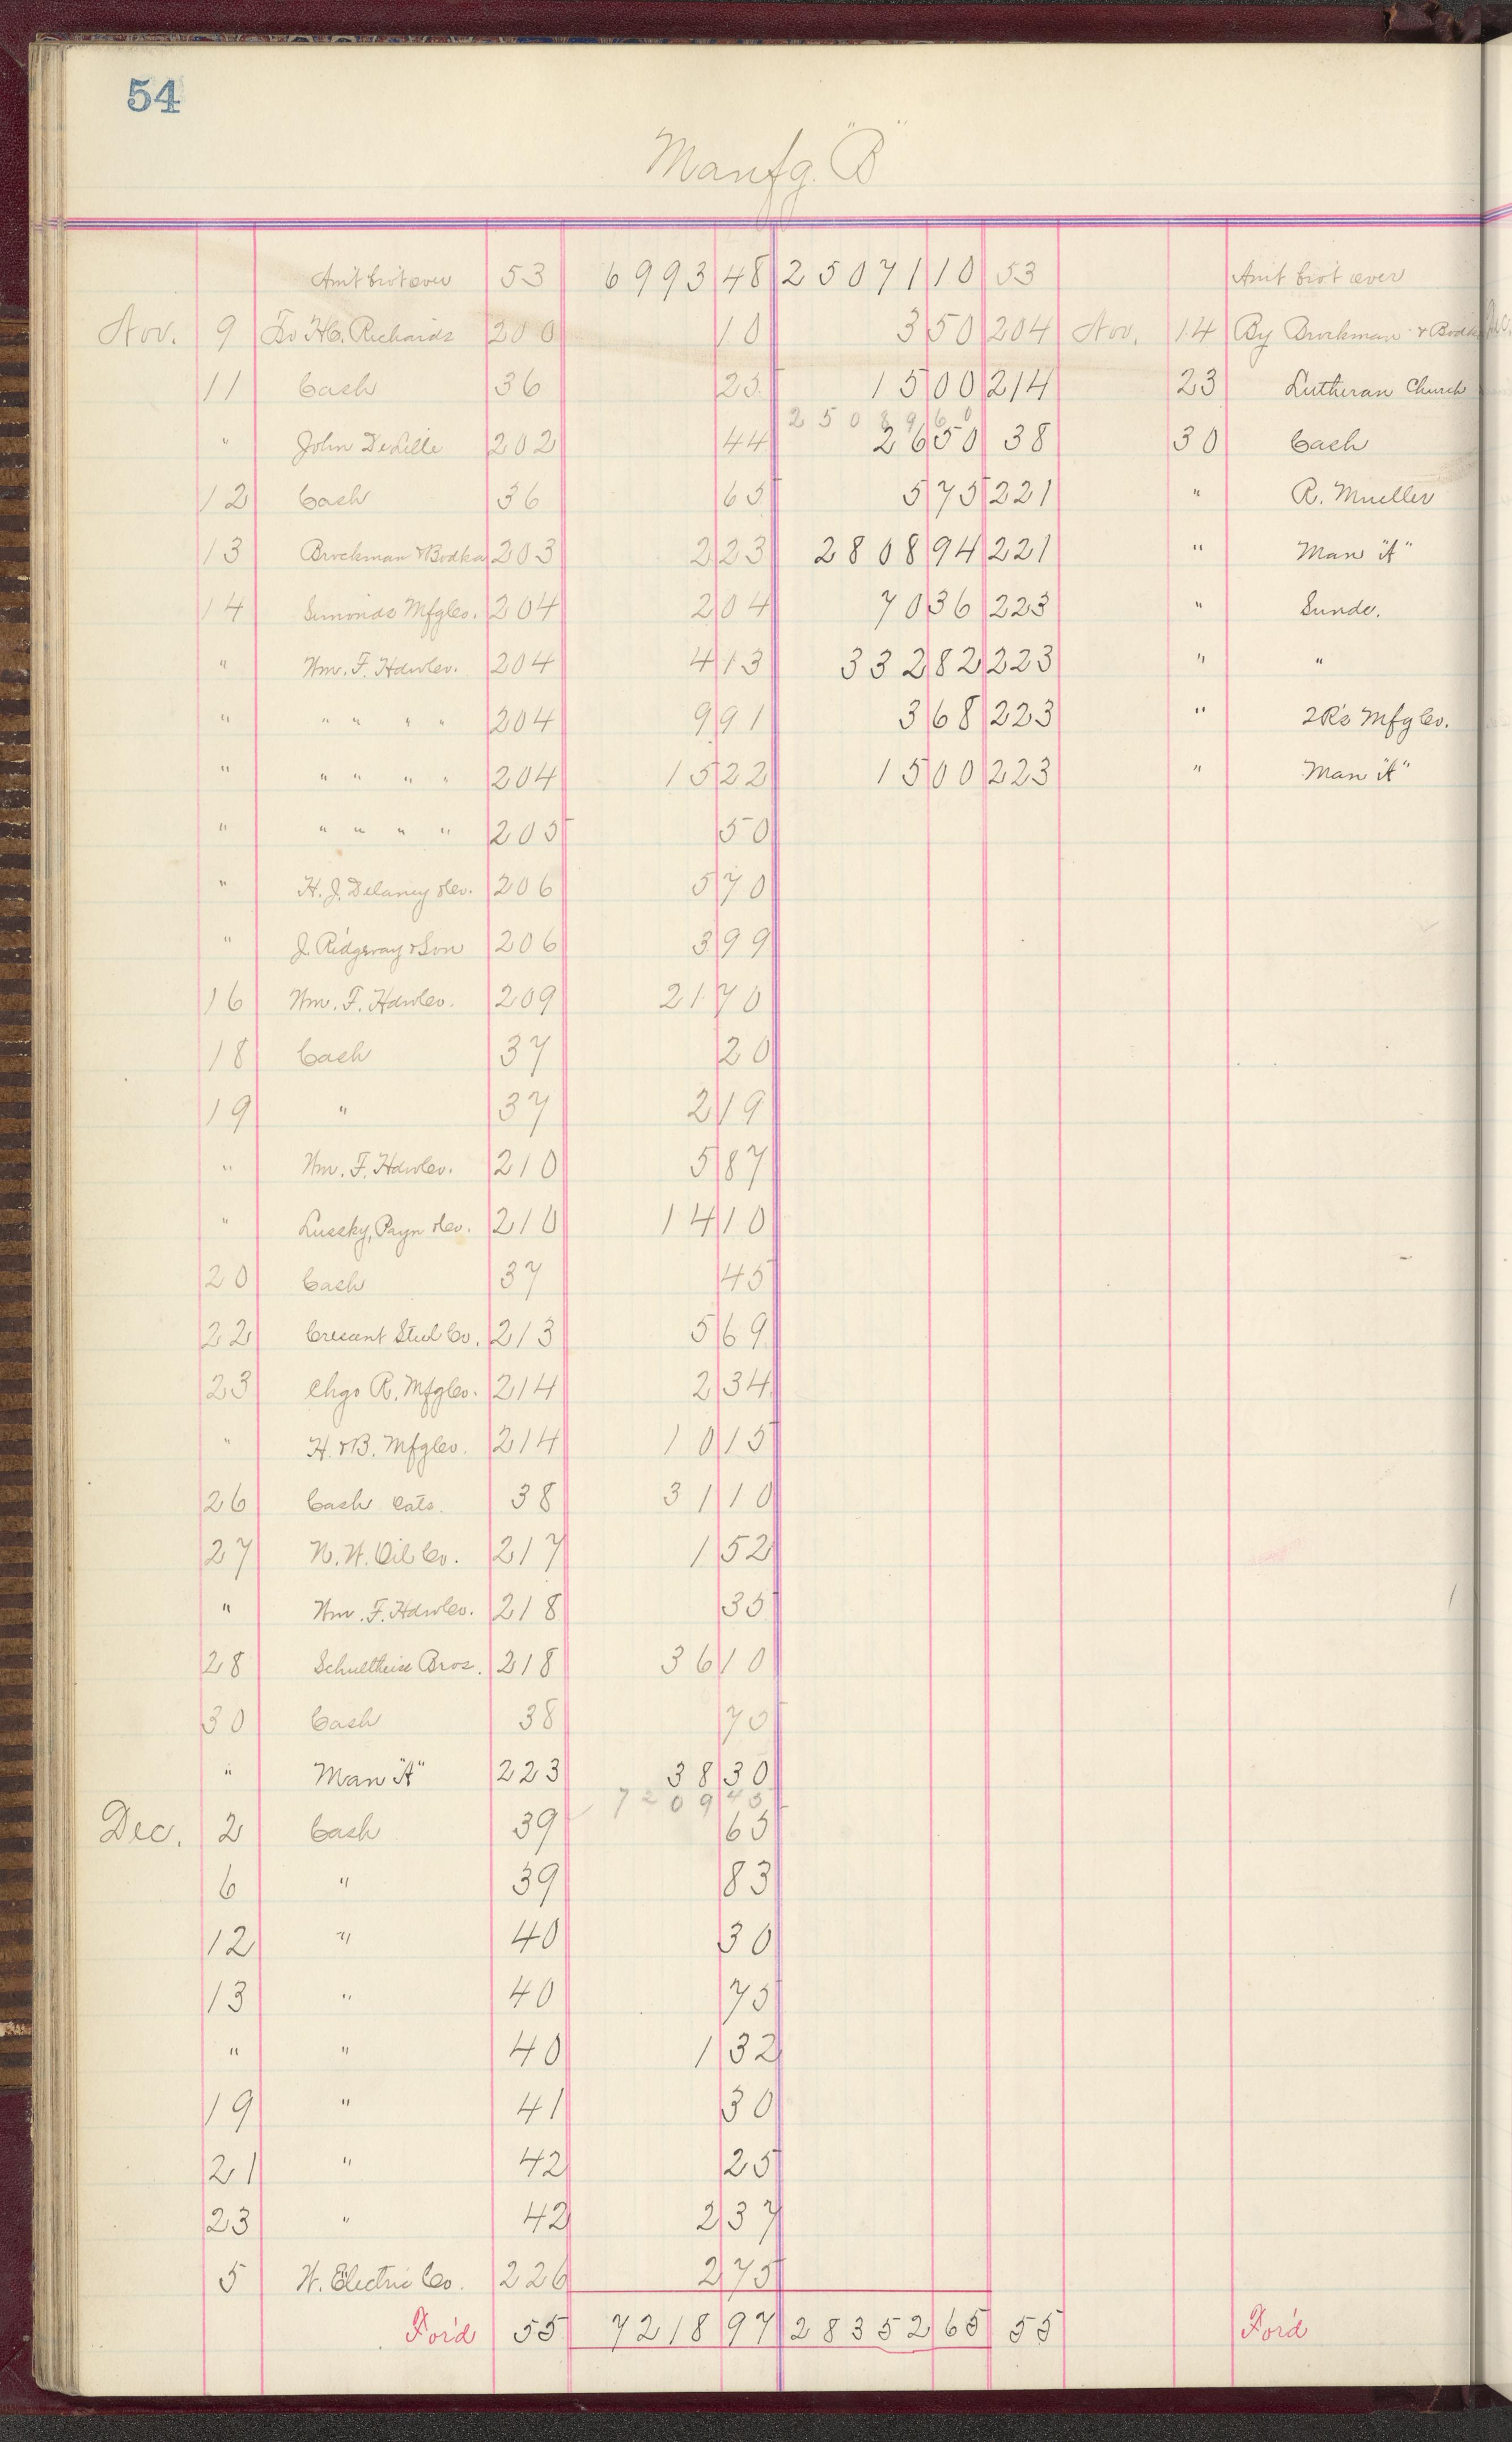 54
Manfg. "B"
Am't bro't over 53 6993 48 25071 10 53 Am't bro't over
Nov. 9 To H.C. Richards 200 10 3 50 204 Nov. 14 By Brockman &
11 Cash 36 25 15 00 214 23 Lutheran Church
" John DeLille 202 44 26 50 38 30 Cash
25089 60
12 Cash 36 65 5 75 221 " R. Mueller
13 Brockman & Bodka 203 2 23 2808 94 221 " Man "A"
14 Simonds Mfg Co. 204 2 04 70 36 223 " Sunds.
" Wm. F. Hdw Co. 204 4 13 332 82 223 " "
" " " " " 204 9 91 3 68 223 " 2R's Mfg Co.
" " " " " 204 15 22 15 00 223 " Man "A"
" " " " " 205 50
" H. J. Delaney & Co. 206 5 70
" J. Ridgway & Son 206 3 99
16 Wm. F. Hdw Co. 209 21 70
18 Cash 37 20
19 " 37 2 19
" Wm. F. Hdw Co. 210 5 87
" Lussky, Payn & Co. 210 14 10
20 Cash 37 45
22 Cresant Steel Co. 213 5 69
23 Chgo R. Mfg Co. 214 2 34
" H. & B. Mfg Co. 214 10 15
26 Cash Cats. 38 31 10
27 N. W. Oil Co. 217 1 52
" Wm. F. Hdw Co. 218 35
28 Schultheise Bros. 218 36 10
30 Cash 38 70
" Man "A" 223 38 30
7209 45
Dec. 2 Cash 39 65
6 " 39 83
12 " 40 30
13 " 40 75
" " 40 1 32
19 " 41 30
21 " 42 25
23 " 42 2 37
5 W. Electric Co. 226 2 75
For'd 55 7218 97 28352 65 55 For'd